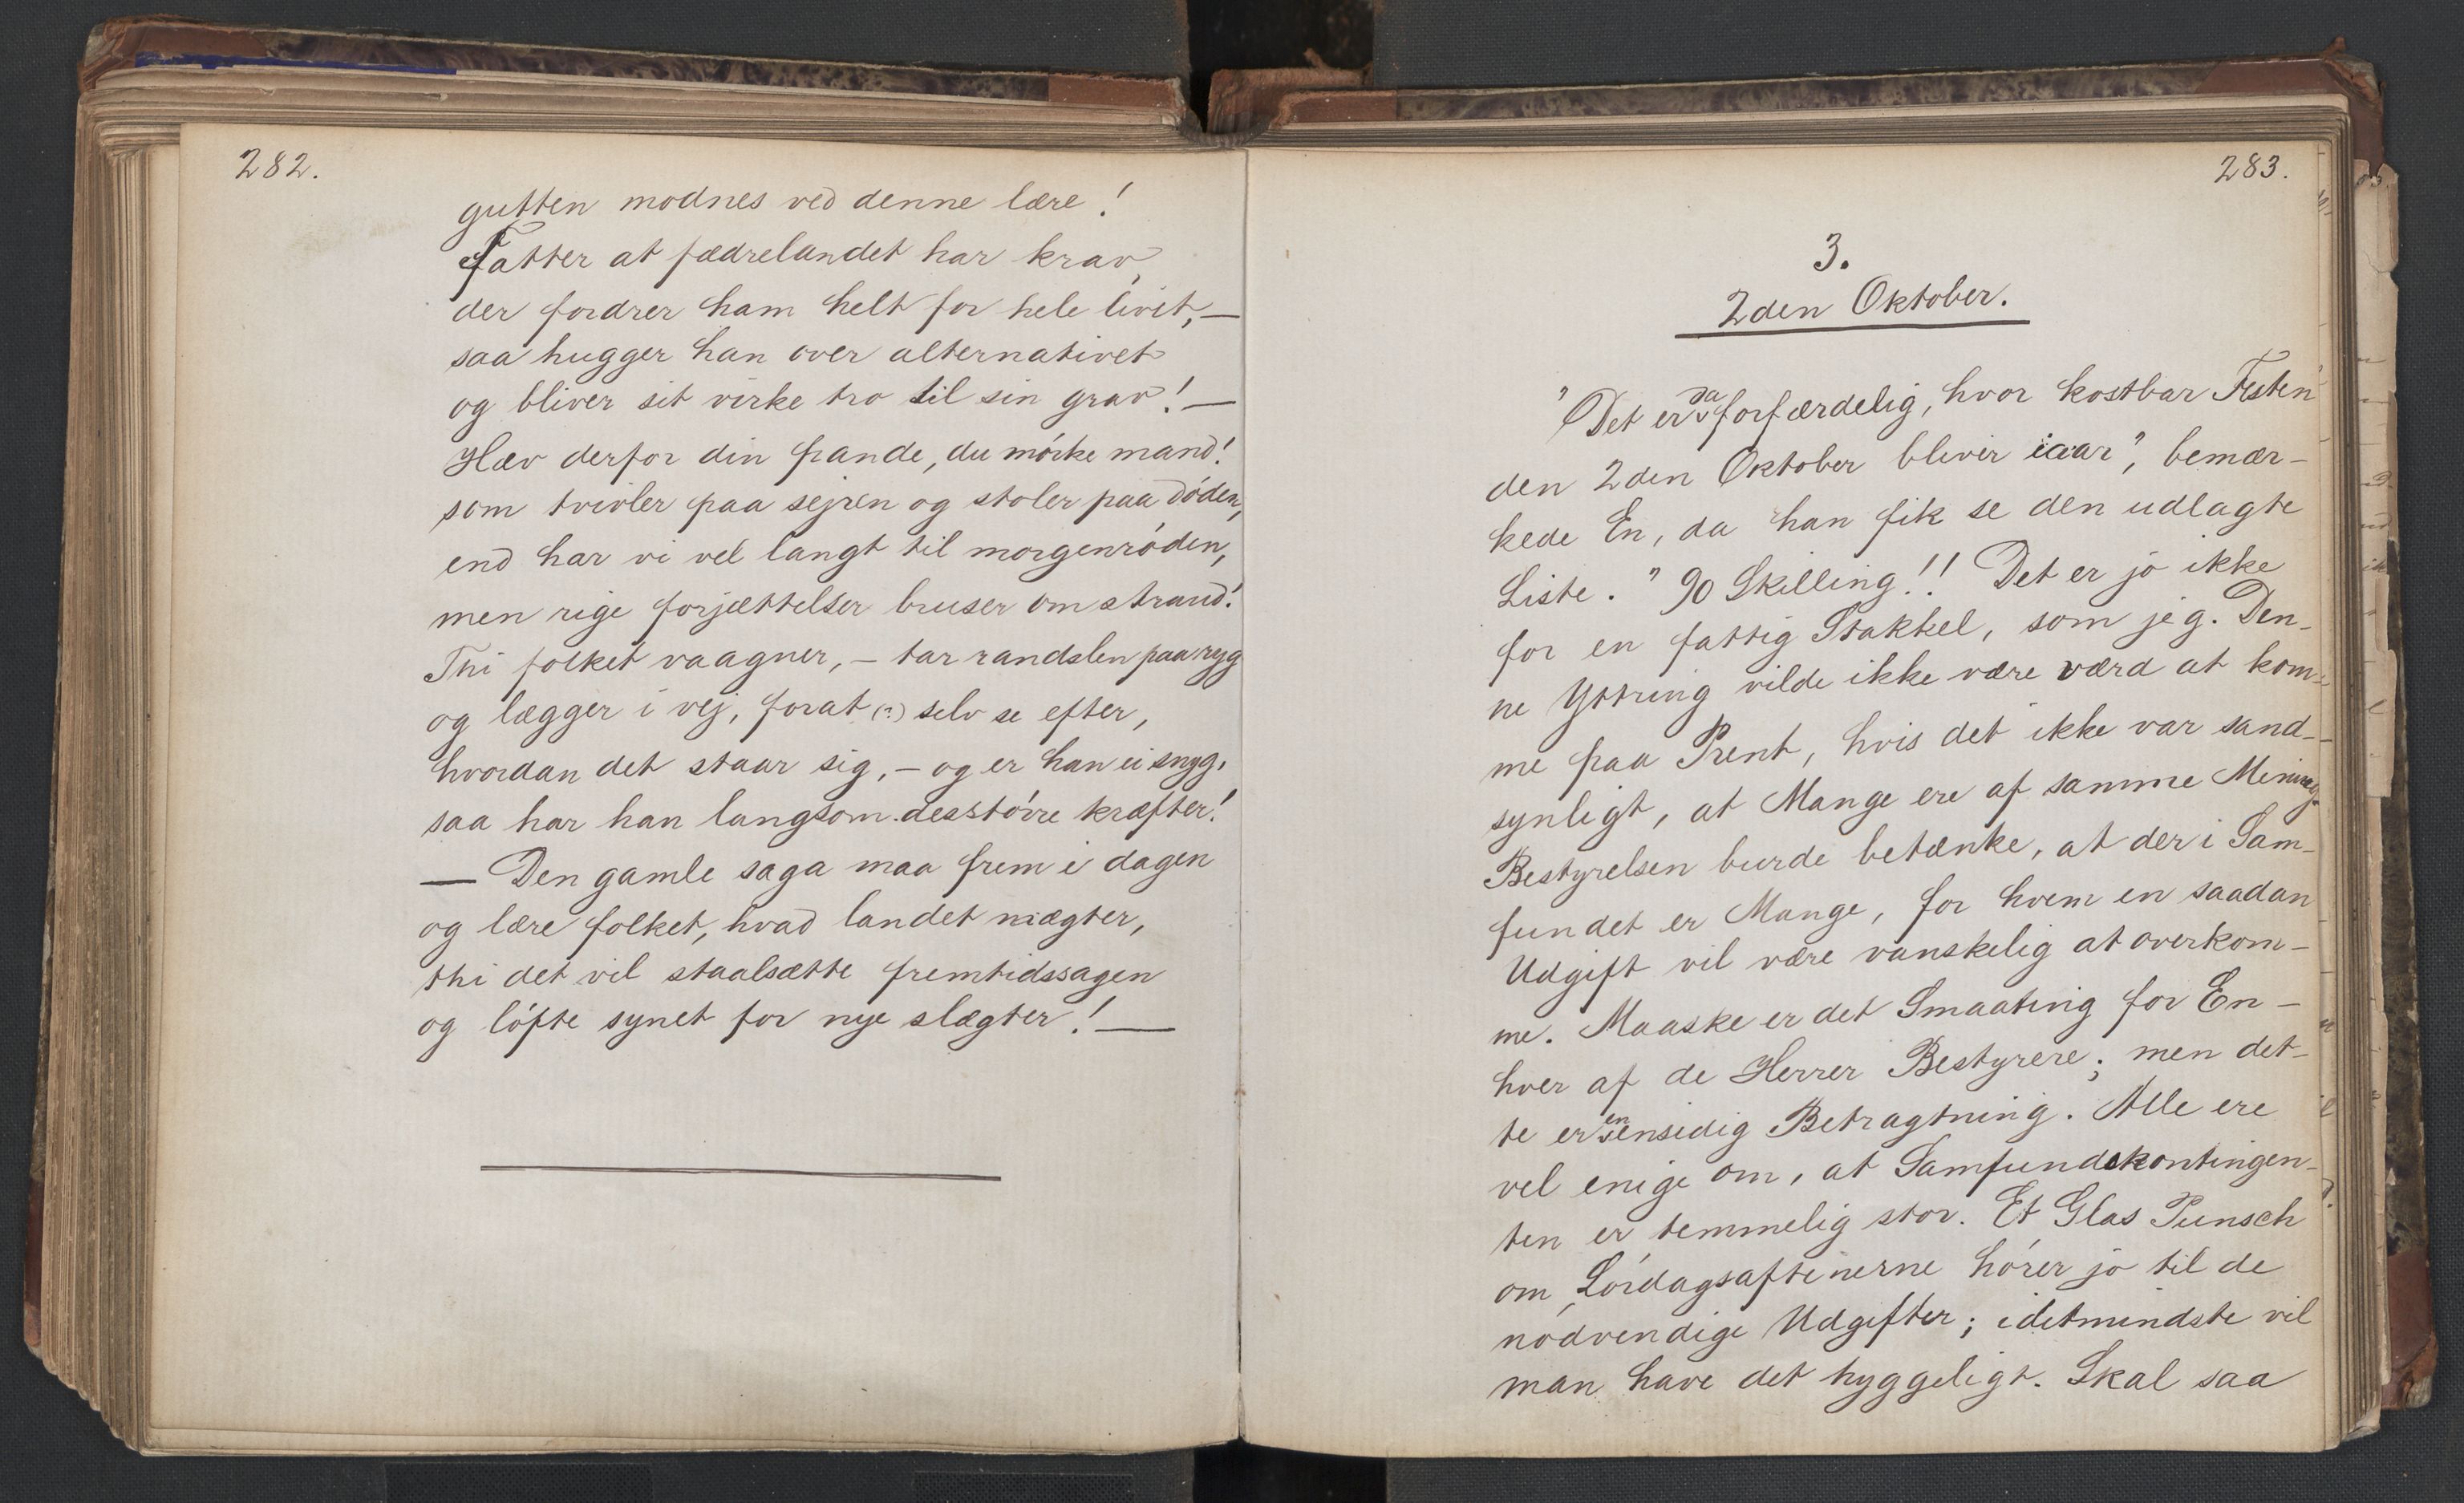 282.
gutten modnes ved denne lære!
Fatter at fædrelandet har krav,
der fordrer ham helt for hele livet, —
saa hugger han over alternativet
og bliver sit virke tro til sin grav! —
Hæv derfor din pande, du mórke mand!
som tvivler paa sejren og stoler paa dóden,
end har vi vel langt til morgenróden,
men rige forjættelser bruser om strand!
Thi folket vaagner, — tar randslen paa ryg
og lægger i vej, forat (?) selv se efter,
hvordan det staar sig, — og er han ei snyg,
saa har han langsom desstórre kræfter!
— Den gamle saga maa frem i dagen
og lære folket, hvad landet mægter,
thi det vil staalsætte fremtidssagen
og lófte synet for nye slægter! —
283.
3.
2den Oktober.
"Det er da forfærdelig, hvor kostbar Festen
den 2den Oktober bliver iaar", bemær-
kede En, da han fik se den udlagte
Liste. "90 Skilling!! Det er jo ikke
for en fattig Stakkel, som jeg. Den-
ne Yttring vilde ikke være værd at kom-
me paa Prent, hvis det ikke var sand-
synligt, at Mange ere af samme Mening.
Bestyrelsen burde betænke, at der i Sam-
fundet er Mange, for hvem en saadan
Udgift vil være vanskelig at overkom-
me. Maaske er det Smaating for En-
hver af de Herrer Bestyrere; men det-
te er en ensidig Betragtning. Alle ere
vel enige om, at Samfundskontingen-
ten er temmelig stor. Et Glas Punsch
om Lórdagsaftenerne hórer jo til de
nódvendige Udgifter; idetmindste vil
man have det hyggeligt. Skal saa